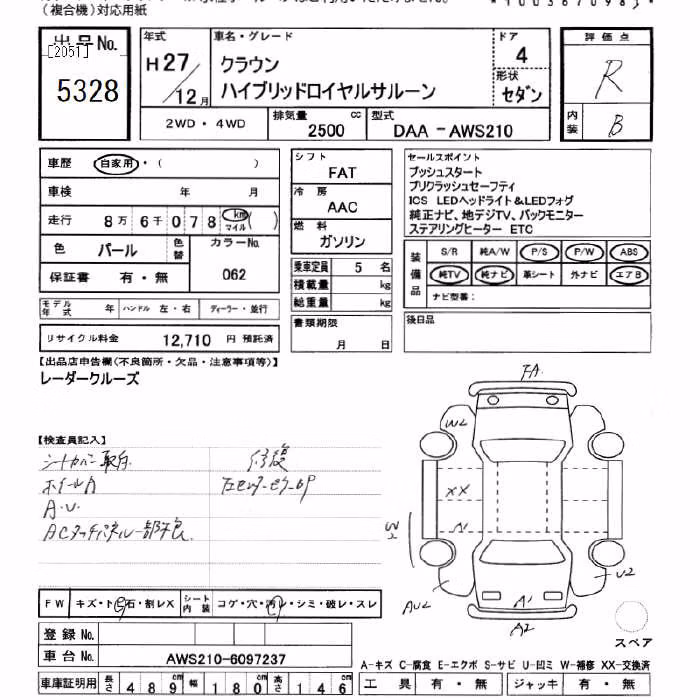 (複合機)対応用紙
出品No.
[2051]
5328
年式
H27/12月
車名・グレード
クラウン
ハイブリッドロイヤルサルーン
ドア
4
形状
セダン
評価点
R
内装
B
2WD・4WD
排気量
2500
cc
型式
DAA-AWS210
車歴
自家用・( )
車検 年 月
走行
8万6千078
km
マイル
( )
色
パール
色替
カラーNo.
062
保証書 有・無
モデル年式 年
ハンドル 左・右
ディーラー・並行
リサイクル料金 12,710 円 預託済
シフト
FAT
冷房
AAC
燃料
ガソリン
乗車定員 5 名
積載量 kg
総重量 kg
書類期限
月 日
セールスポイント
プッシュスタート
プリクラッシュセーフティ
ICS LEDヘッドライト&LEDフォグ
純正ナビ、地デジTV、バックモニター
ステアリングヒーター ETC
装備品
S/R 純A/W P/S P/W ABS
純TV 純ナビ 革シート 外ナビ エアB
ナビ型番:
後日品
【出品店申告欄(不良箇所・欠品・注意事項等)】
レーダークルーズ
【検査員記入】
修復
ホイールA
A.U.
FA
W2
XX
A1
W2
AU2
U2
A1
A2
スペア
FW
キズ・トビ石・割レX
シート内装
コゲ・穴・汚レ・シミ・破レ・スレ
登録No.
車台No.
AWS210-6097237
車庫証明用
長さ 489 cm
幅 180 cm
高さ 146 cm
A-キズ C-腐食 E-エクボ S-サビ U-凹ミ W-補修 XX-交換済
工具 有・無
ジャッキ 有・無